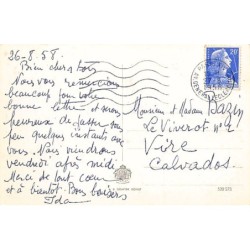 26-8-58.
Bien chers tous
Nous vous remercions
beaucoup pour votre
bonne lettre et sommes
heureux de passer un
peu quelques instants avec
vous. Nous viendrons
vendredi après midi
Merci de tout cœur
et à bientôt. Bons baisers
Ida
20F
Monsieur et Madame BAZIN
Le Viverot nº 2
Vire
Calvados.